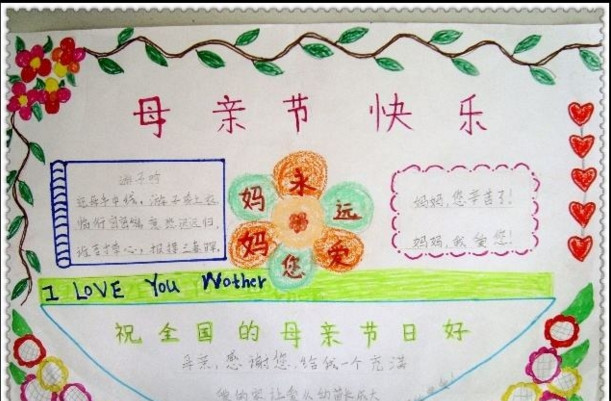 母亲节快乐
游子吟
慈母手中线，游子身上衣，
临行密密缝，意恐迟迟归，
谁言寸草心，报得三春晖
妈妈永远爱您
妈妈，您辛苦了！
妈妈，我爱您！
I LOVE You Mother
祝全国的母亲节日好
母亲，感谢您，给我一个充满